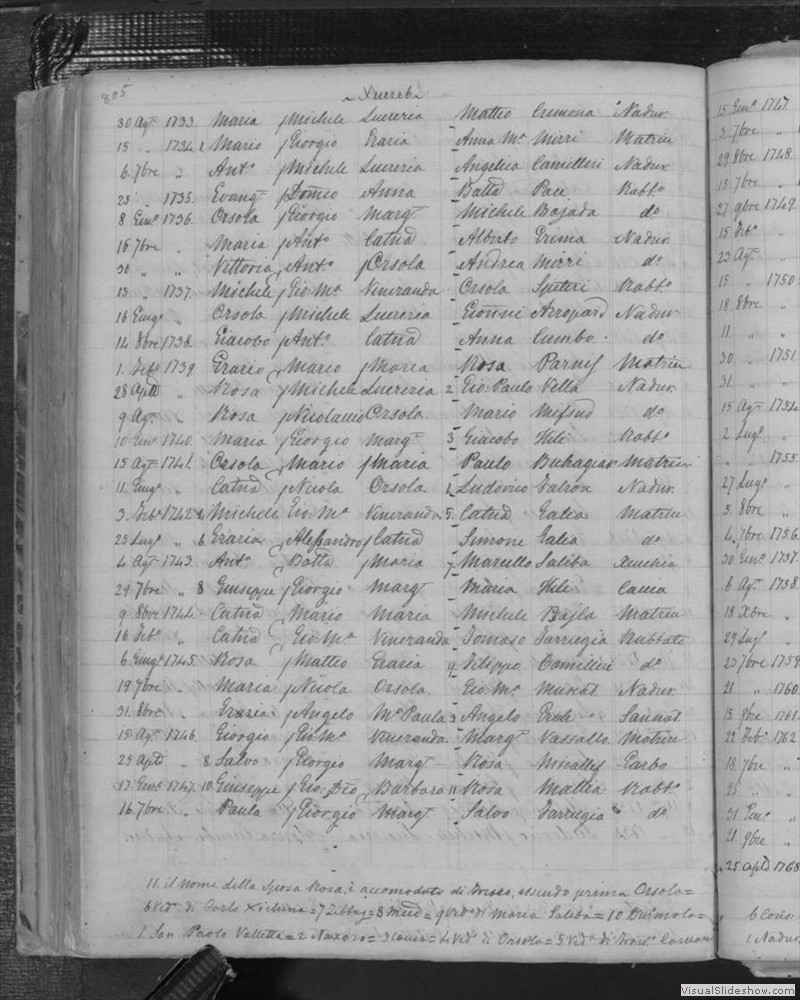 805
~ Xuereb ~
30 Agᵗ 1733. Maria Michele Lucrezia Matteo Cremona Nadur.
15 " 1734. 1 Mario Giorgio Grazia Anna Mᵃ Mizzi Matrice
6. 7bre " Antᵒ Michele Lucrezia Angelica Camilleri Nadur.
23 " 1735. Evangᵗᵃ Domco Anna Batta Pace Rabbᵒ
8 1736. Orsola Giorgio Margᵗᵃ Michele Bajada dᵒ
16 7bre " Maria Antᵒ Catna Alberto Nadur.
30 " " Vittoria Antᵒ Orsola Andrea Mizzi dᵒ
15 " 1737. Michele Gio: Mᵃ Veneranda Orsola Spiteri Rabbᵒ
16 " Orsola Michele Lucrezia Gionni Nadur.
14 8bre 1738. Giacobo Antᵒ Catna Anna Cumbo. dᵒ
1. Febᵒ 1739. Grazio Mario Maria Rosa Parnis Matrice
28 " Rosa Michele Lucrezia 2 Gio: Paulo Vella Nadur.
9 Agᵗ " Rosa Orsola. Mario Mifsud dᵒ
10 1740. Maria Giorgio Margᵗᵃ 3 Giacobo Hili Rabbᵒ
15 Agᵗ 1741. Orsola Mario Maria Paulo Buhagiar Matrice
11. " Catna Nicola Orsola. Ludovico Nadur.
3. Febᵒ 1742. Michele Gio. Mᵃ Veneranda 5. Catna Galea Matrice
25 Lugᵒ " 6 Grazia Alessandro Catna Simone Galia dᵒ
4. Agᵗ 1743. Antᵒ Batta Maria 7 Marcello Saliba
29 7bre " 8 Giuseppe Giorgio Margᵗᵃ Maria Hili Caccia
9. 8bre 1744. Catna Mario Maria Michele Matrice
16 Febᵒ " Catna Gio: Mᵃ Veneranda Tomaso Farrugia Rabbato
6. 1745. Rosa Matteo Grazia 9. Filippo Camilleri dᵒ
19 7bre " Maria Nicola Orsola. Gio: Mᵃ Nadur.
31. 8bre " Grazia Angelo Mᵃ Paula 3 Angelo Sannat.
15 Agᵗ 1746. Giorgio Gio: Mᵃ Veneranda Margᵗᵃ Vassallo Matrice
25 " 8 Salvo Giorgio Margᵗᵃ Rosa Micallef Garbo
17 1747. 10 Giuseppe Gio: Barbara 11 Rosa Mattia Rabbᵒ
16 7bre " Paula Giorgio Margᵗᵃ Salvo Farrugia dᵒ
11. il nome della Sposa Rosa è accomodato di fresco, essendo prima Orsola =
6 Vedᵃ di Carlo = 7 Zebbug = 8 = 9 Vedᵒ di Maria Saliba = 10
1. San Paolo Valletta = 2 Naxaro = 3 = 4 Vedᵒ di Orsola = 5 Vedᵃ di
15 1747.
2 7bre "
29 8bre 1748.
15 7bre "
27 9bre 1749.
15 Febᵒ "
23 Agᵗ "
15 " 1750.
18 8bre "
11 " "
30 " 1751.
31 " "
15 Agᵗ 1754.
2 Lugᵒ "
" 1755.
27 Lugᵒ "
5. 8bre "
4. 7bre 1756.
30 1757.
6 Agᵗ 1758.
18 Xbre "
29 Lugᵒ "
23 7bre 1759
21 " 1760.
15 9bre 1761.
22 Febᵒ 1762
18. 7bre "
25 " "
31
21. 9bre "
25 1768
6 Cons.
1. Nadur
VisualSlideshow.com